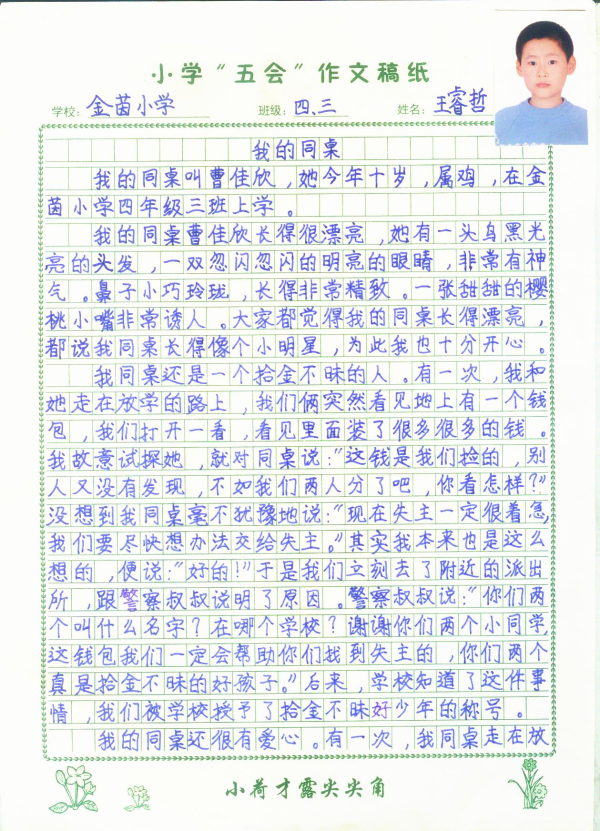 小学“五会”作文稿纸
学校：金茵小学 班级：四、三 姓名：王睿哲
我的同桌
我的同桌叫曹佳欣，她今年十岁，属鸡，在金
茵小学四年级三班上学。
我的同桌曹佳欣长得很漂亮，她有一头乌黑光
亮的头发，一双忽闪忽闪的明亮的眼睛，非常有神
气。鼻子小巧玲珑，长得非常精致。一张甜甜的樱
桃小嘴非常诱人。大家都觉得我的同桌长得漂亮，
都说我同桌长得像个小明星，为此我也十分开心。
我同桌还是一个拾金不昧的人。有一次，我和
她走在放学的路上，我们俩突然看见地上有一个钱
包，我们打开一看，看见里面装了很多很多的钱。
我故意试探她，就对同桌说：“这钱是我们捡的，别
人又没有发现，不如我们两人分了吧，你看怎样？”
没想到我同桌毫不犹豫地说：“现在失主一定很着急，
我们要尽快想办法交给失主。”其实我本来也是这么
想的，便说：“好的！”于是我们立刻去了附近的派出
所，跟警察叔叔说明了原因。警察叔叔说：“你们两
个叫什么名字？在哪个学校？谢谢你们两个小同学，
这钱包我们一定会帮助你们找到失主的，你们两个
真是拾金不昧的好孩子”后来，学校知道了这件事
情，我们被学校授予了拾金不昧好少年的称号。
我的同桌还很有爱心。有一次，我同桌走在放
小荷才露尖尖角